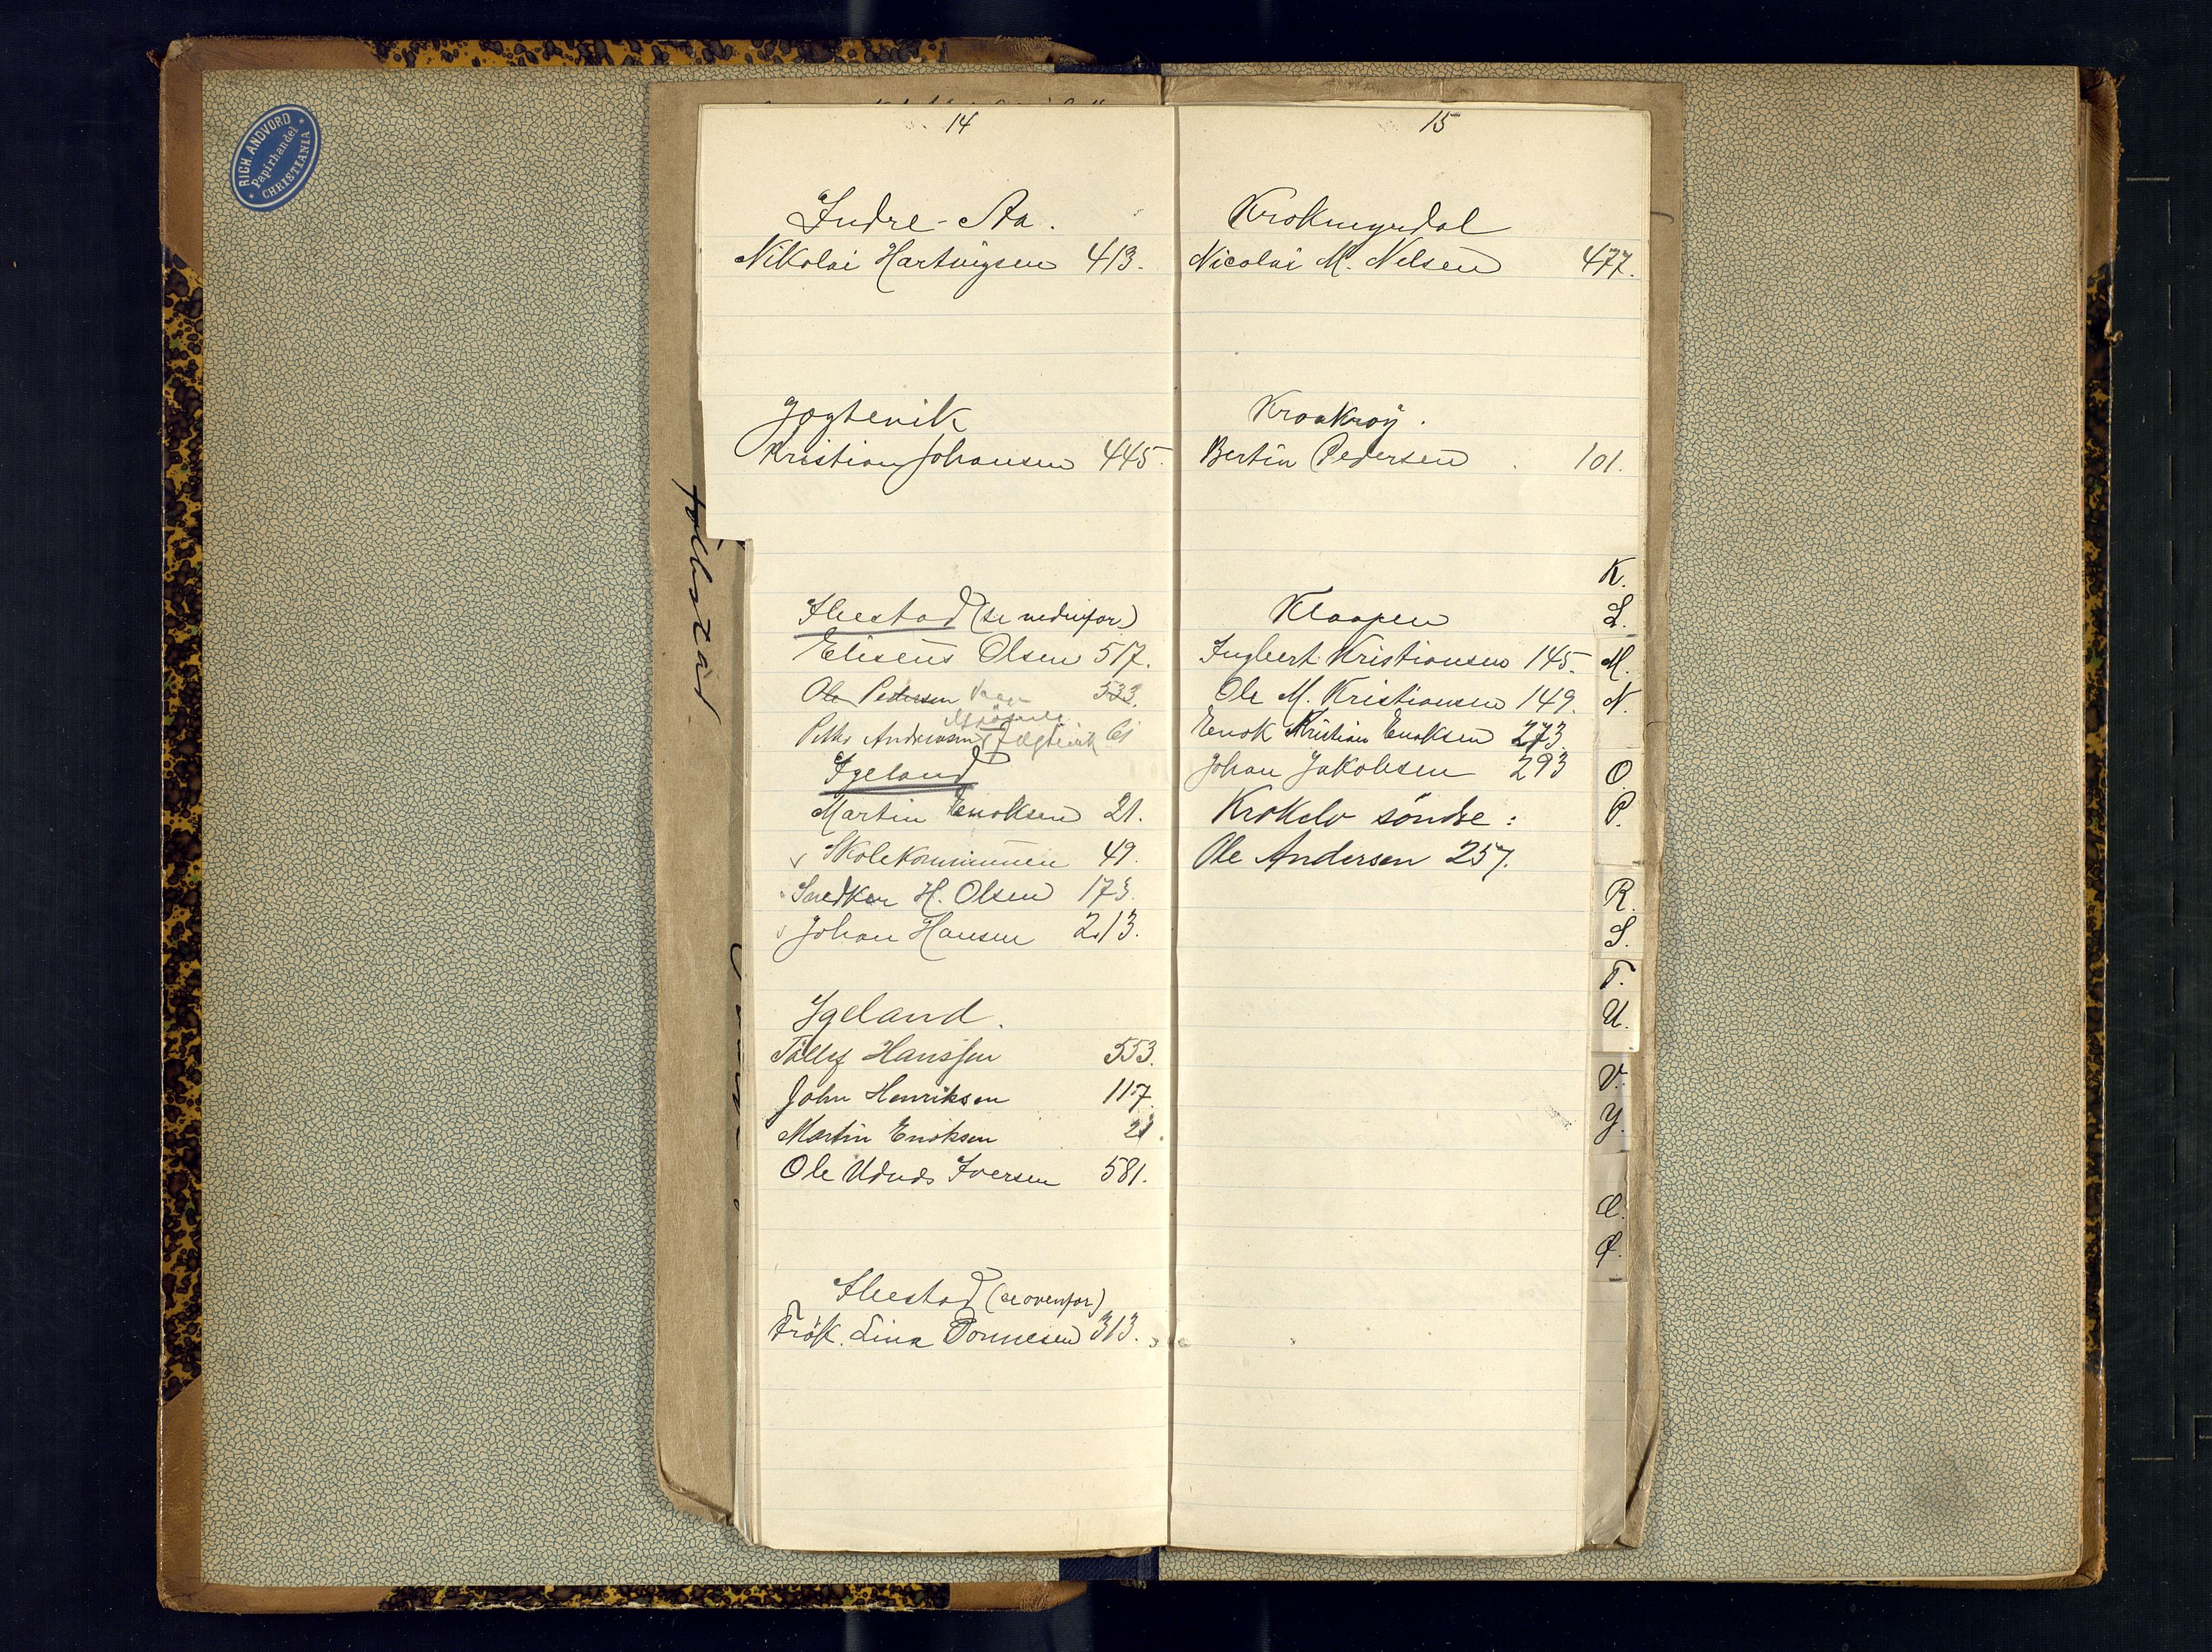 RICH. ANDVORD
Papirhandel
CHRISTIANIA
14
Indre-Aa.
Nikolai Hartvigsen 413.
Jægtevik
Kristian Johansen 445.
Ilestad (se nedenfor)
Eliseus Olsen 517.
Ole Pedersen 533.
Peder Andreasen Jægtevik 61
Igeland
Martin Enoksen 21.
Skolekommunen 49.
Snedker H. Olsen 173.
Johan Hansen 213.
Igeland.
Hanssen 553.
John Henriksen 117.
Martin Enoksen 21.
Ole Iversen 581.
Ilestad (se ovenfor)
Frøk. Lina Tonnesen 313.
15
Krokmyrdal
Nicolai M. Nilsen 477.
Kraakrøy.
Bertin Pedersen 101.
Klaapen
Ingbert Kristiansen 145.
Ole M. Kristiansen 149.
Enok Kristian Enoksen 273
Johan Jakobsen 293
Krokelv söndre:
Ole Andersen 257.
K.
L.
M.
N.
O.
P.
R.
S.
T.
U.
V.
Y.
Æ.
Ø.